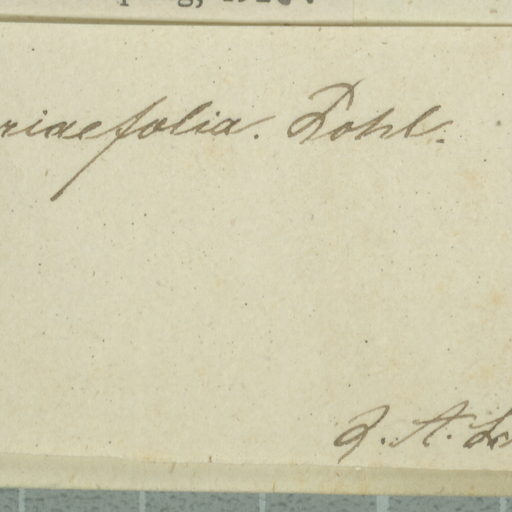 riaefolia. Pohl.
J. A. Sc